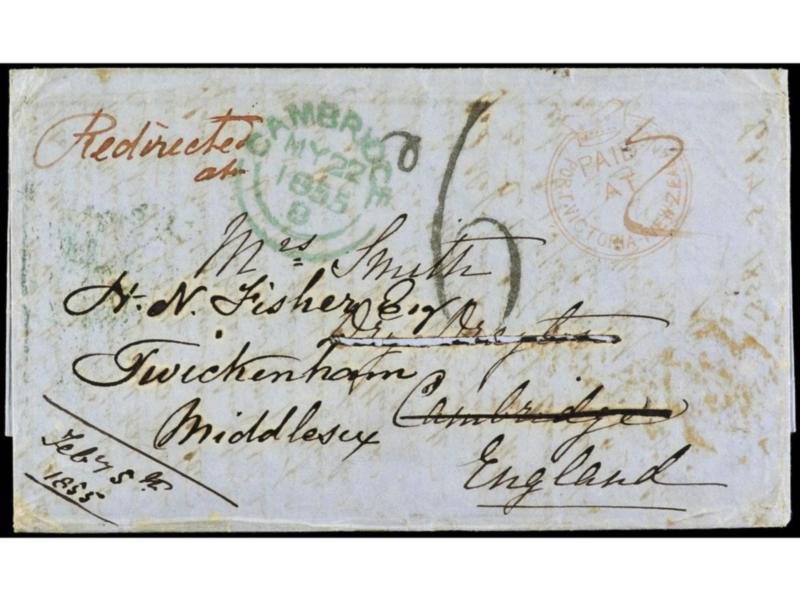 Redirected
at
CAMBRIDGE
MY 22
1855
8
6
PAID
AT
PORT VICTORIA NEW ZEA
Mrs Smith
H. N. Fisher Esq
Dry Drayton
Twickenham
Cambridge
Middlesex
England
Feby 5
1855